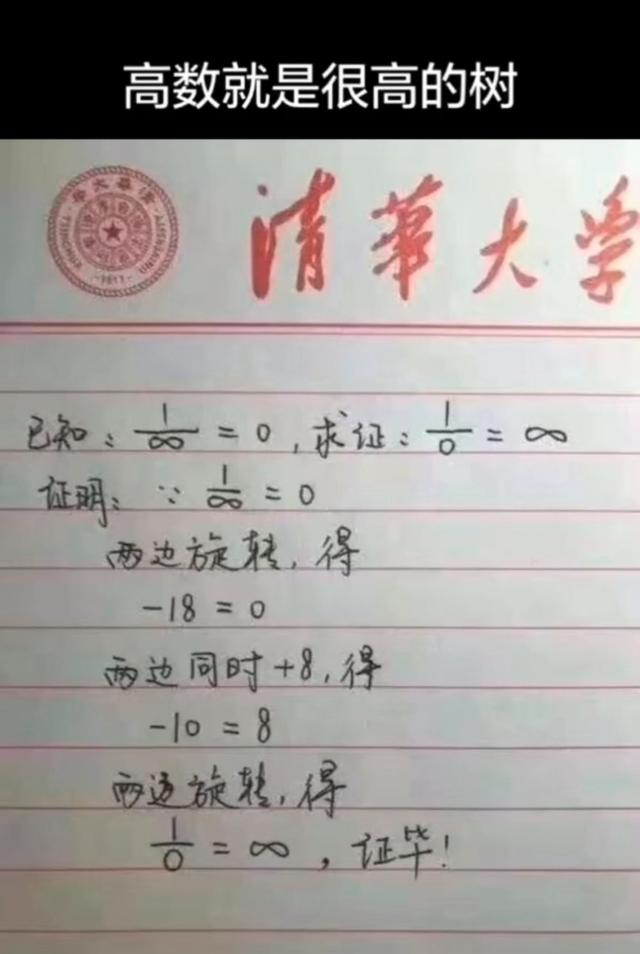 高数就是很高的树
清華大学
已知：1/∞ = 0，求证：1/0 = ∞
证明：∵ 1/∞ = 0
两边旋转，得
-18 = 0
两边同时+8，得
-10 = 8
两边旋转，得
1/0 = ∞，证毕！